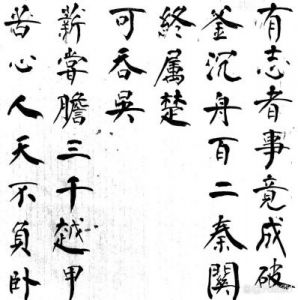 有志者事竟成破
釜沉舟百二秦關
終屬楚
苦心人天不負卧
薪嘗膽三千越甲
可吞吳